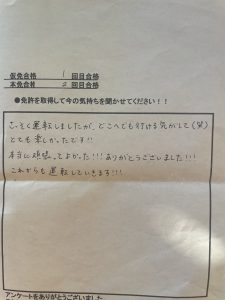 仮免合格 1 回目合格
本免合格 2 回目合格
●免許を取得して今の気持ちを聞かせてください！！
さっそく運転しましたが、どこへでも行ける気がして(笑)
とても楽しかったです!!
本当に頑張ってよかった!!! ありがとうございました!!!
これからも運転していきます!!!
アンケートをありがとうございました